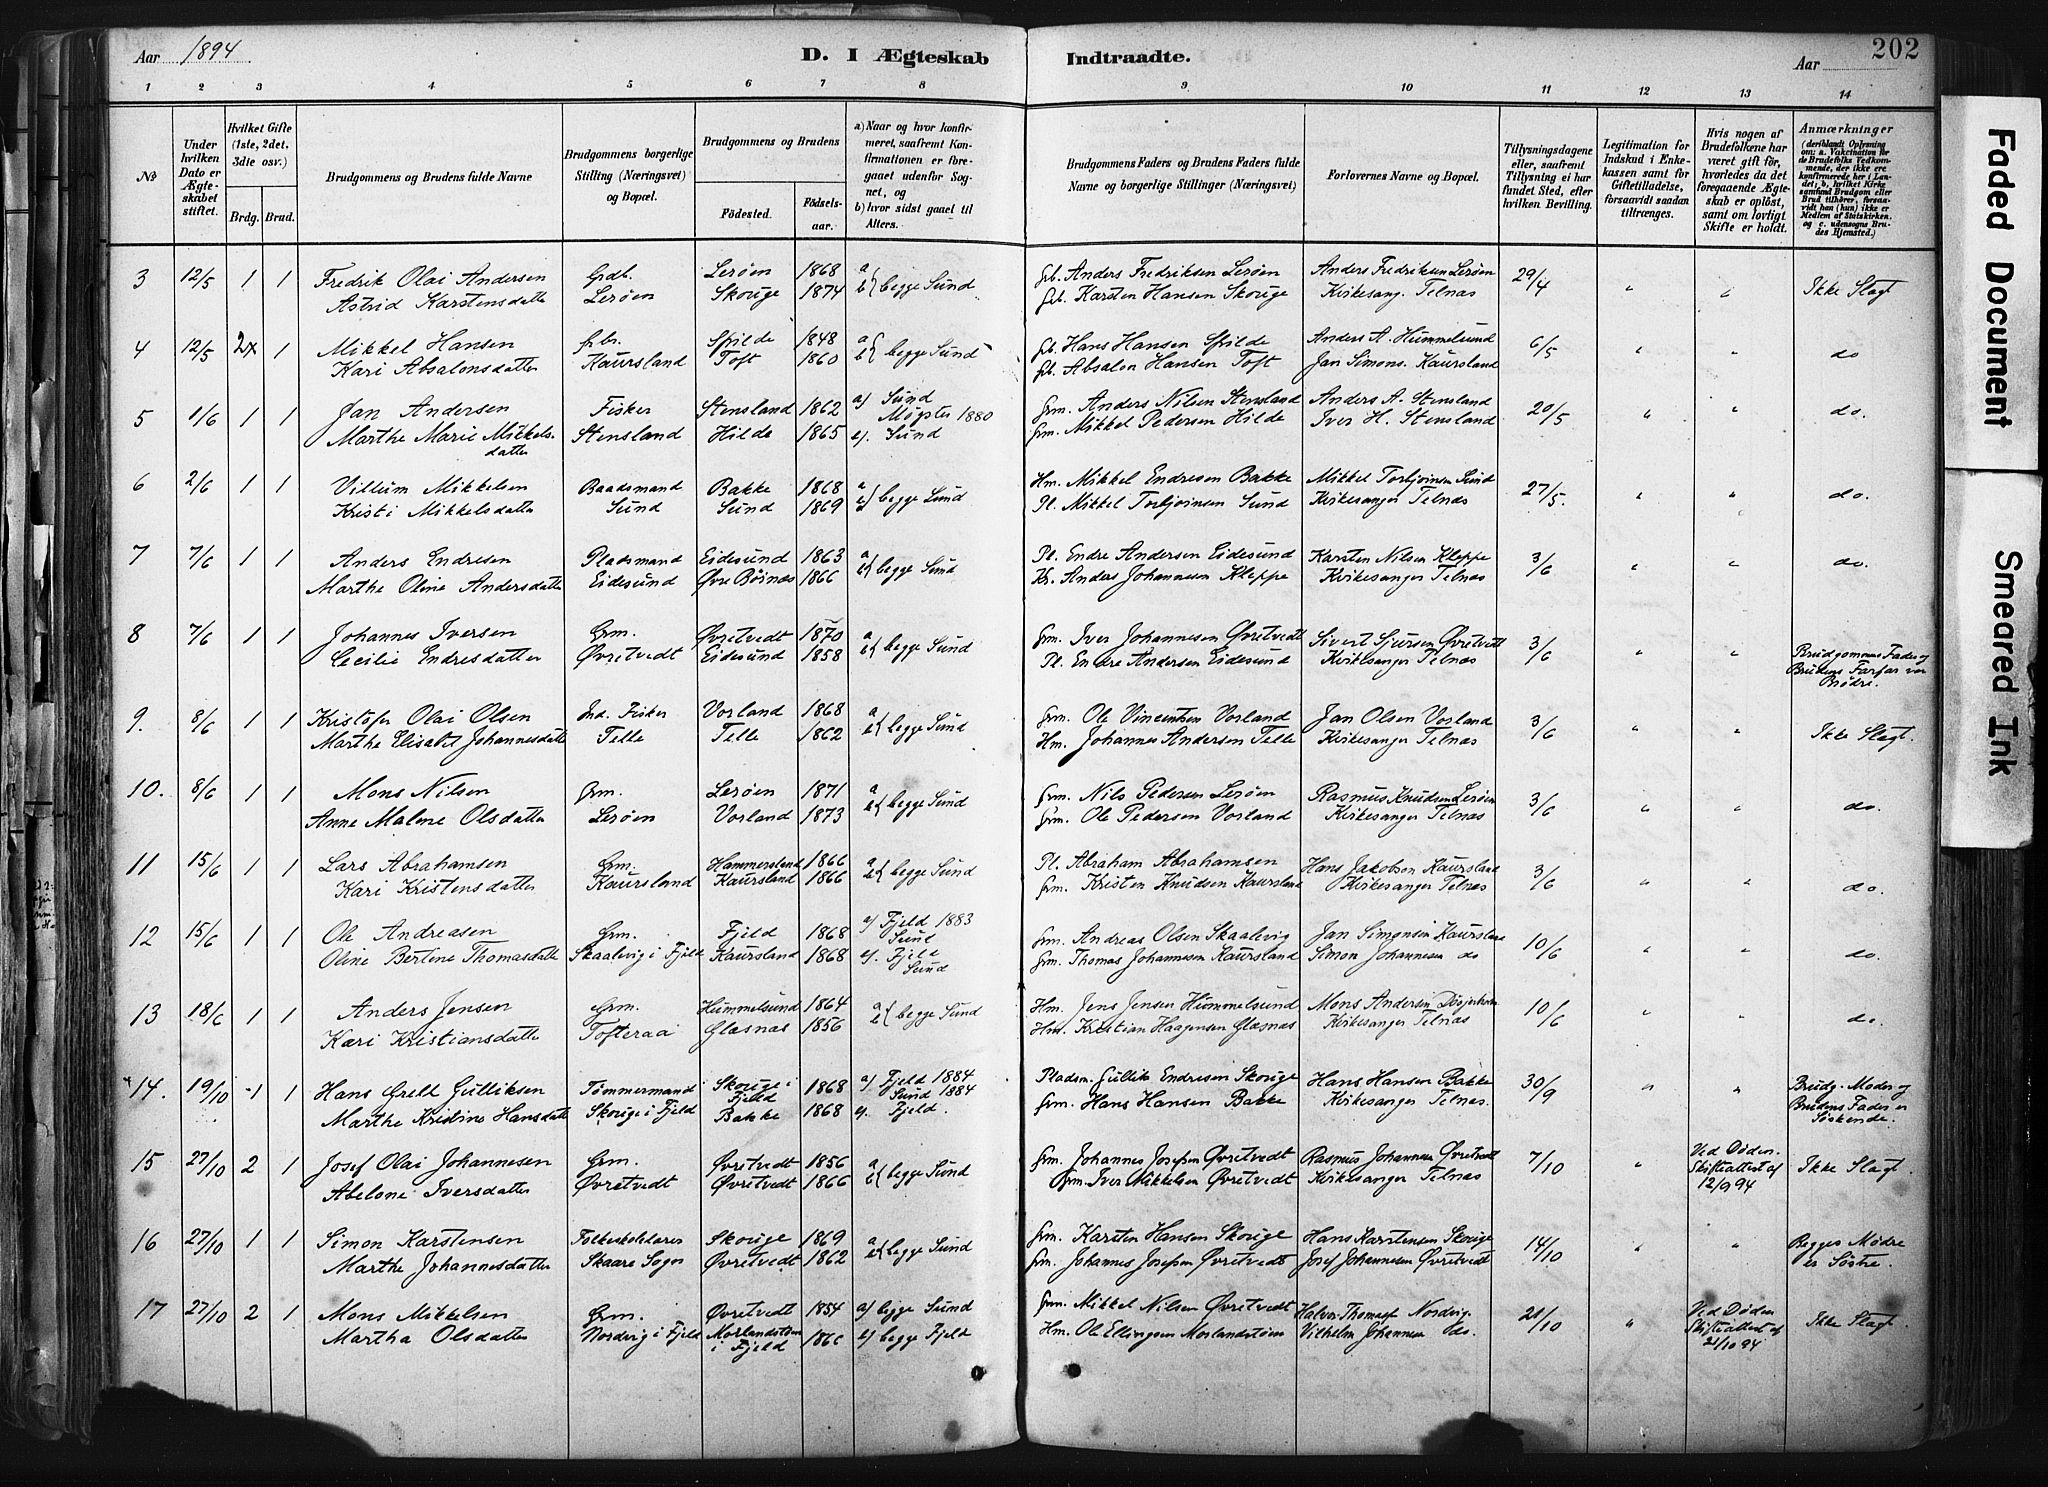 Aar 1894 D. I Ægteskab Indtraadte. Aar 202
1 2 3 4 5 6 7 8 9 10 11 12 13 14
№
Under hvilken Dato er Ægteskabet stiftet.
Hvilket Gifte (1ste, 2det, 3die osv.)
Brdg. Brud.
Brudgommens og Brudens fulde Navne
Brudgommens borgerlige Stilling (Næringsvei) og Bopæl.
Brudgommens og Brudens
Fødested. Fødselsaar.
a) Naar og hvor konfirmeret, saafremt Konfirmationen er foregaaet udenfor Sognet, og
b) hvor sidst gaaet til Alters.
Brudgommens Faders og Brudens Faders fulde Navne og borgerlige Stillinger (Næringsvei)
Forlovernes Navne og Bopæl.
Tillysningsdagene eller, saafremt Tillysning ei har fundet Sted, efter hvilken Bevilling.
Legitimation for Indskud i Enkekassen samt for Giftetilladelse, forsaavidt saadan tiltrænges.
Hvis nogen af Brudefolkene har været gift før, hvorledes da det foregaaende Ægteskab er opløst, samt om lovligt Skifte er holdt.
Anmærkninger (deriblandt Oplysning om: a. Vakcination for de Brudefolks Vedkommende, der ikke ere konfirmerede her i Landet; b, hvilket Kirkesamfund Brudgom eller Brud tilhører, forsaavidt han (hun) ikke er Medlem af Statskirken. og c. udensogns Brudes Hjemsted.)
3 12/5 1 1 Fredrik Olai Andersen Grdb. Lerøen 1868 a b begge Sund Grb. Anders Fredriksen Lerøen Anders Fredriksen Lerøen 29/4 " " Ikke Slagt
Astrid Karstensdatter Lerøen Skouge 1874 Grb. Karsten Hansen Skouge Kirkesang. Telnas
4 12/5 2x 1 Mikkel Hansen Grb. Spilde 1848 a b begge Sund Grb. Hans Hansen Spilde Anders A. Hummelsund 6/5 " " do
Kari Absalonsdatter Kaursland Toft 1860 Grb. Absalon Hansen Toft Jan Simons. Kaursland
5 1/6 1 1 Jan Andersen Fisker Stensland 1862 a) Sund Møgster 1880 Grm. Anders Nilsen Stensland Anders A. Stensland 20/5 " " do.
Marthe Marie Mikkelsdatter Stensland Hilde 1865 b). Sund Grm. Mikkel Pedersen Hilde Iver H. Stensland
6 2/6 1 1 Villum Mikkelsen Baadsmand Bakke 1868 a b begge Sund Hm. Mikkel Endresen Bakke Mikkel Torbjørnsen Sund 27/5. " " do.
Kristi Mikkelsdatter Sund Sund 1869 Pl. Mikkel Torbjørnsen Sund Kirkesanger Telnas
7 7/6 1 1 Anders Endresen Pladsmand Eidesund 1863 a b begge Sund Pl. Endre Andersen Eidesund Karsten Nilsen Kleppe 3/6 " " do.
Marthe Oline Andersdatter Eidesund Øvre Børnes 1866 Anders Johannesen Kleppe Kirkesanger Telnas
8 7/6 1 1 Johannes Iversen Grm. Øvretvedt 1870 a b begge Sund Grm. Iver Johannesen Øvretvedt Sivert Sjursen Øvretvedt 3/6 " " Brudgommens Fader og Brudens Farfar var Brødre.
Cecilie Endresdatter Øvretvedt Eidesund 1858 Pl. Endre Andersen Eidesund Kirkesanger Telnas
9. 8/6 1 1 Kristofer Olai Olsen Ind. Fisker Vorland 1868 a b begge Sund Grm. Ole Vincentsen Vorland Jan Olsen Vorland 3/6 " " Ikke Slagt.
Marthe Elisabet Johannesdatter Telle Telle 1862 Hm. Johannes Andersen Telle Kirkesanger Telnas
10. 8/6 1 1 Mons Nilsen Grm. Lerøen 1871 a b begge Sund Grm. Nils Pedersen Lerøen Rasmus Knudsen Lerøen 3/6 " " do.
Anne Malene Olsdatter Lerøen Vorland 1873 Grm. Ole Pedersen Vorland Kirkesanger Telnas
11 15/6 1 1 Lars Abrahamsen Grm. Hammersland 1866 a b begge Sund Pl. Abraham Abrahamsen Hans Jakobson Kaursland 3/6 " " do.
Kari Kristensdatter Kaursland Kaursland 1866 Grm. Kristen Knudsen Kaursland Kirkesanger Telnas
12 15/6 1 1 Ole Andreasen Grm. Fjeld 1868 a) Fjeld 1883 Sund Grm. Andreas Olsen Skaalevig Jan Simonsen Kaursland 10/6 " " do.
Oline Bertine Thomasdatter Skaalevig i Fjeld Kaursland 1868 b). Fjeld Sund Grm. Thomas Johannesen Kaursland Simon Johannesen do
13 18/6 1 1 Anders Jensen Grm. Hummelsund 1864 a b begge Sund Hm. Jens Jensen Hummelsund Mons Andersen 10/6 " " do.
Kari Kristiansdatter Tofteraa Glæsnas 1856 Hm. Kristian Haagensen Glæsnas Kirkesanger Telnas
14. 19/10 1 1 Hans Greld Gulliksen Tømmermand Skouge i Fjeld 1868 a) Fjeld 1884 Sund 1884 Pladsm. Gullik Endresen Skouge Hans Hansen Bakke 30/9 " " Brudg. Moder og Brudens Fader er Søskende.
Marthe Kristine Hansdatter Skouge i Fjeld Bakke 1868 b). Fjeld. Grm. Hans Hansen Bakke Kirkesanger Telnas.
15 27/10 2 1 Josef Olai Johannesen Grm. Øvretvedt 1856 a b begge Sund Grm. Johannes Josefsen Øvretvedt Rasmus Johannesen Øvretvedt 7/10 " Ved Døden. Skifteattest af 12/9 94 Ikke Slagt.
Abelone Iversdatter Øvretvedt Øvretvedt 1866 Grm. Iver Mikkelsen Øvretvedt Kirkesanger Telnas
16 27/10 1 1 Simon Karstensen Folkeskolelærer Skouge 1869 a b begge Sund Grm. Karsten Hansen Skouge Hans Karstensen Skouge 14/10 " " Begges Mødre er Søstre.
Marthe Johannesdatter Skaare Sogn Øvretvedt 1862 Grm. Johannes Josefsen Øvretvedt Josef Johannesen Øvretvedt
17 27/10 2 1 Mons Mikkelsen Grm. Øvretvedt 1854 a) begge Sund Grm. Mikkel Nilsen Øvretvedt Halvor Thomsef Nordvig. 21/10 " Ved Døden Skifteattest af 21/10 94 Ikke Slagt.
Martha Olsdatter Nordvig i Fjeld Morlandstøen i Fjeld 1866 b) begge Fjeld Hm. Ole Ellingsen Morlandstøen Vilhelm Johannsen do.
Faded Document
Smeared Ink